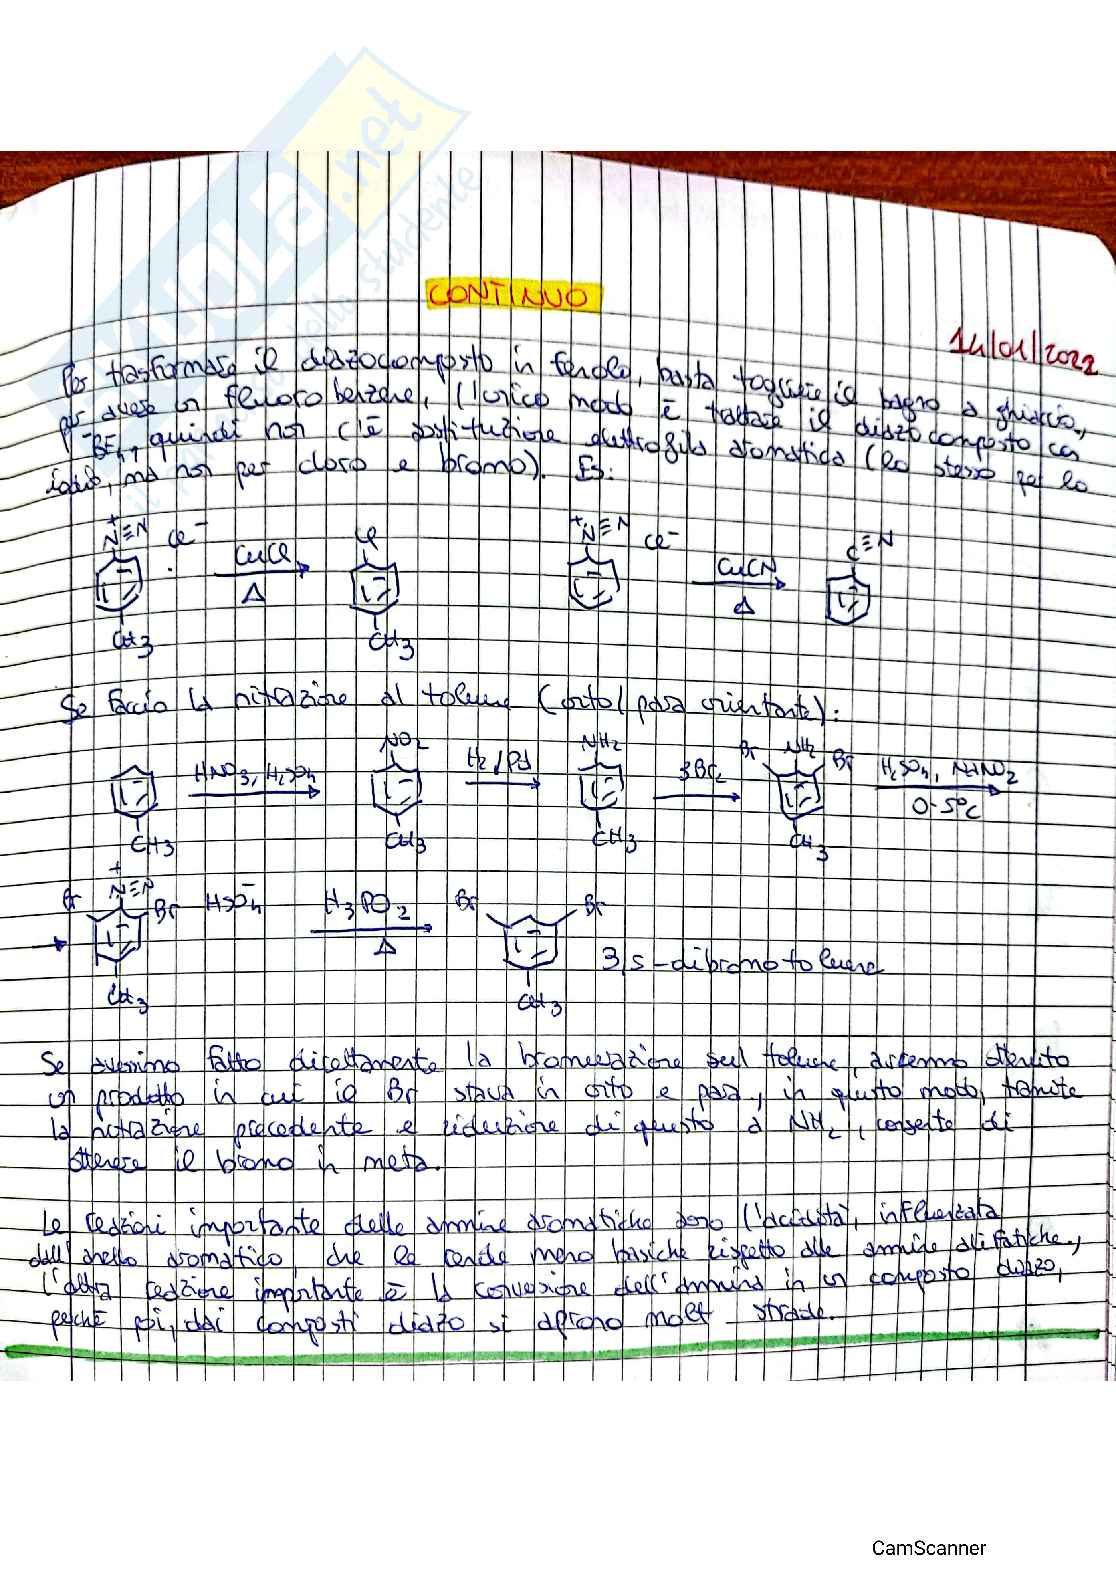 SKUOLA.net
CONTINUO
14/01/2022
Per trasformare il diazocomposto in fenolo, basta togliere il bagno a ghiaccio,
per avere un fluoro benzene, l'unico modo è trattare il diazocomposto con
BF₄, quindi non c'è sostituzione elettrofila aromatica (lo stesso per lo
iodio, ma non per cloro e bromo). Es:
+N≡N Cl⁻ CuCl Δ Cl +N≡N Cl⁻ CuCN Δ C≡N
CH3 CH3
Se faccio la nitrazione al toluene (orto/para orientante):
HNO3, H2SO4 NO2 H2/Pd NH2 3Br2 Br NH2 Br H2SO4, NHNO2
0-5°C
CH3 CH3 CH3 CH3
Br +N≡N Br HSO4⁻ H3PO2 Δ Br Br
3,5-dibromotoluene
CH3 CH3
Se avessimo fatto direttamente la bromurazione sul toluene, avremmo ottenuto
un prodotto in cui il Br stava in orto e para, in questo modo, tramite
la nitrazione precedente e riduzione di questo a NH2, consente di
ottenere il bromo in meta.
Le reazioni importante delle ammine aromatiche sono l'acidità, influenzata
dall'anello aromatico, che le rende meno basiche rispetto alle ammine alifatiche,
l'altra reazione importante è la conversione dell'ammina in un composto diazo,
perché poi, dai composti diazo si aprono molte strade.
CamScanner